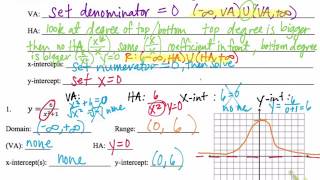 VA: set denominator = 0 (-∞, VA) U (VA, +∞)
HA: look at degree of top/bottom top degree is bigger
then no HA same coefficient in front, bottom
is bigger R: (-∞, HA) U (HA, +∞)
x-intercepts: set numerator = 0, then solve
y-intercept: set x=0
VA: HA: x-int: y-int:
1. y = 6/(x²+1) none y=0 6≠0 none 6/(0+1) =6
Domain: (-∞, +∞) Range: (0, 6)
VA: none HA: y=0
x-intercept(s): none y-intercept: (0, 6)